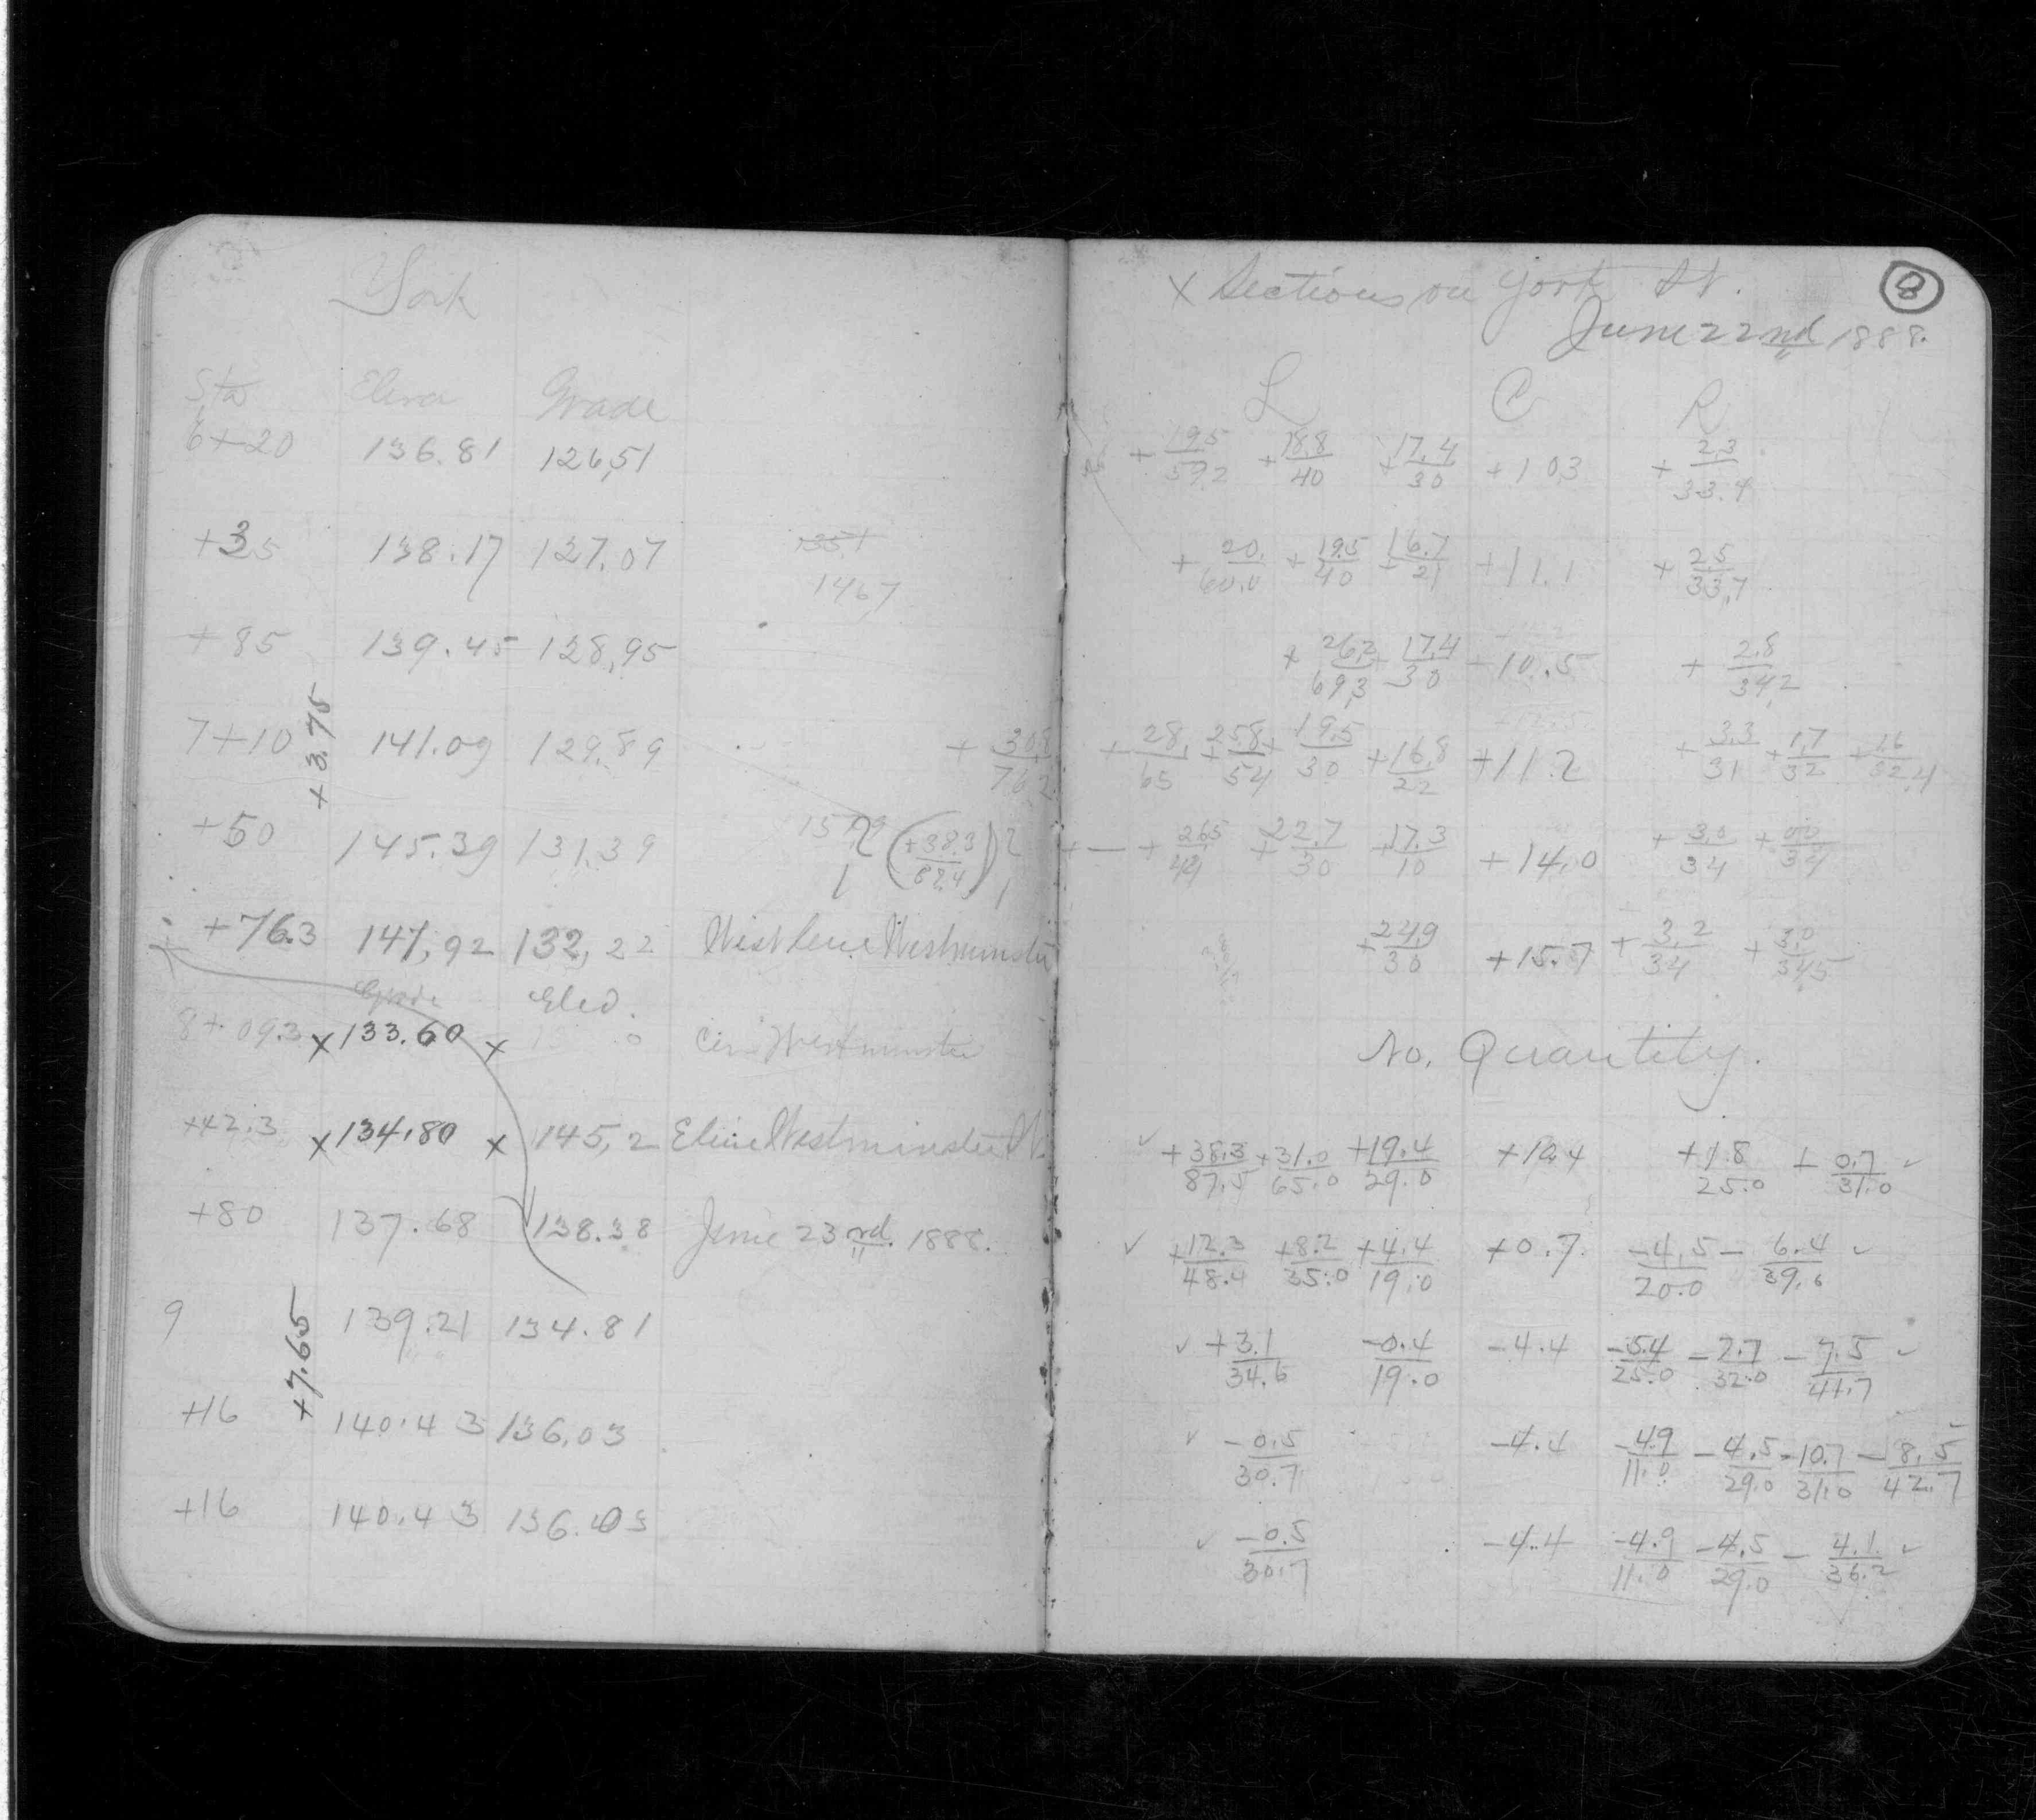 York
Sta Eleva Grade
6+20 136.81 126,51
+35 138.17 127.07
1467
+85 139.45 128,95
+3.75
7+10 141.09 129.89 + 30.8/76.2
+50 145.39 131.39 (+38.3/87.4)
+76.3 147,92 132,22 West line Westminster
Grade Eled.
8+09.3 x 133.60 x Cen Westminster
+42.3 x 134.80 x 145,2 E line Westminster St.
+80 137.68 138.38 June 23rd. 1888.
9 139.21 134.81
+7.65
+16 140.43 136.03
+16 140.43 136.03
8
x Sections on York St.
June 22nd 1888.
L C R
+ 19.5/59.2 + 18.8/40 + 17.4/30 + 10.3 + 2.3/33.4
+ 20./60.0 + 19.5/40 + 16.7/21 + 11.1 + 2.5/33.7
+ 26.2/69.3 + 17.4/30 + 10.5 + 2.8/34.2
+ 28./65 + 25.8/54 + 19.5/30 + 16.8/22 + 11.2 + 3.3/31 + 1.7/32 + 1.6/32.4
+ 26.5/44 + 22.7/30 + 17.3/10 + 14.0 + 3.0/34 + 0.0/34
+ 24.9/30 + 15.7 + 3.2/34 + 3.0/34.5
No. Quantity.
✓ + 38.3/87.5 + 31.0/65.0 + 19.4/29.0 + 10.4 + 1.8/25.0 + 0.7/31.0 ✓
✓ + 12.3/48.4 + 8.2/35.0 + 4.4/19.0 + 0.7 - 4.5/20.0 - 6.4/39.6 ✓
✓ + 3.1/34.6 - 0.4/19.0 - 4.4 - 5.4/25.0 - 7.7/32.0 - 7.5/41.7 ✓
✓ - 0.5/30.7 - 4.4 - 4.9/11.0 - 4.5/29.0 - 10.7/31.0 - 8.5/42.7 ✓
✓ - 0.5/30.7 - 4.4 - 4.9/11.0 - 4.5/29.0 - 4.1/36.2 ✓